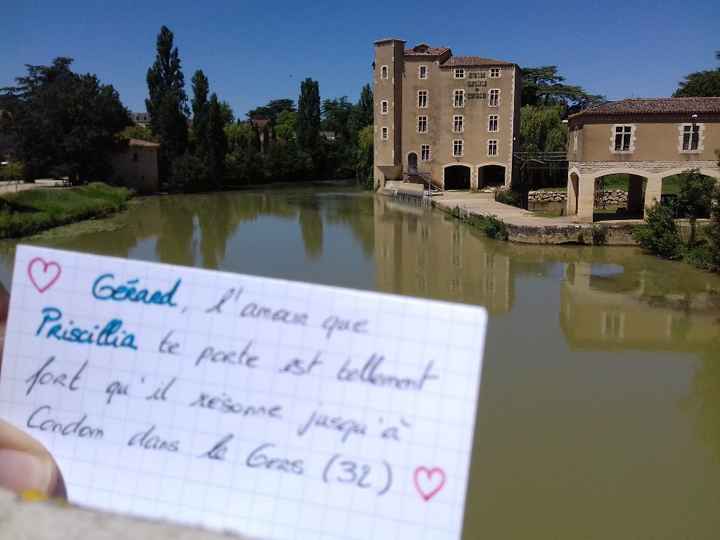 Gérard, l'amour que
Priscillia te porte est tellement
fort qu'il résonne jusqu'à
Condom dans le Gers (32)